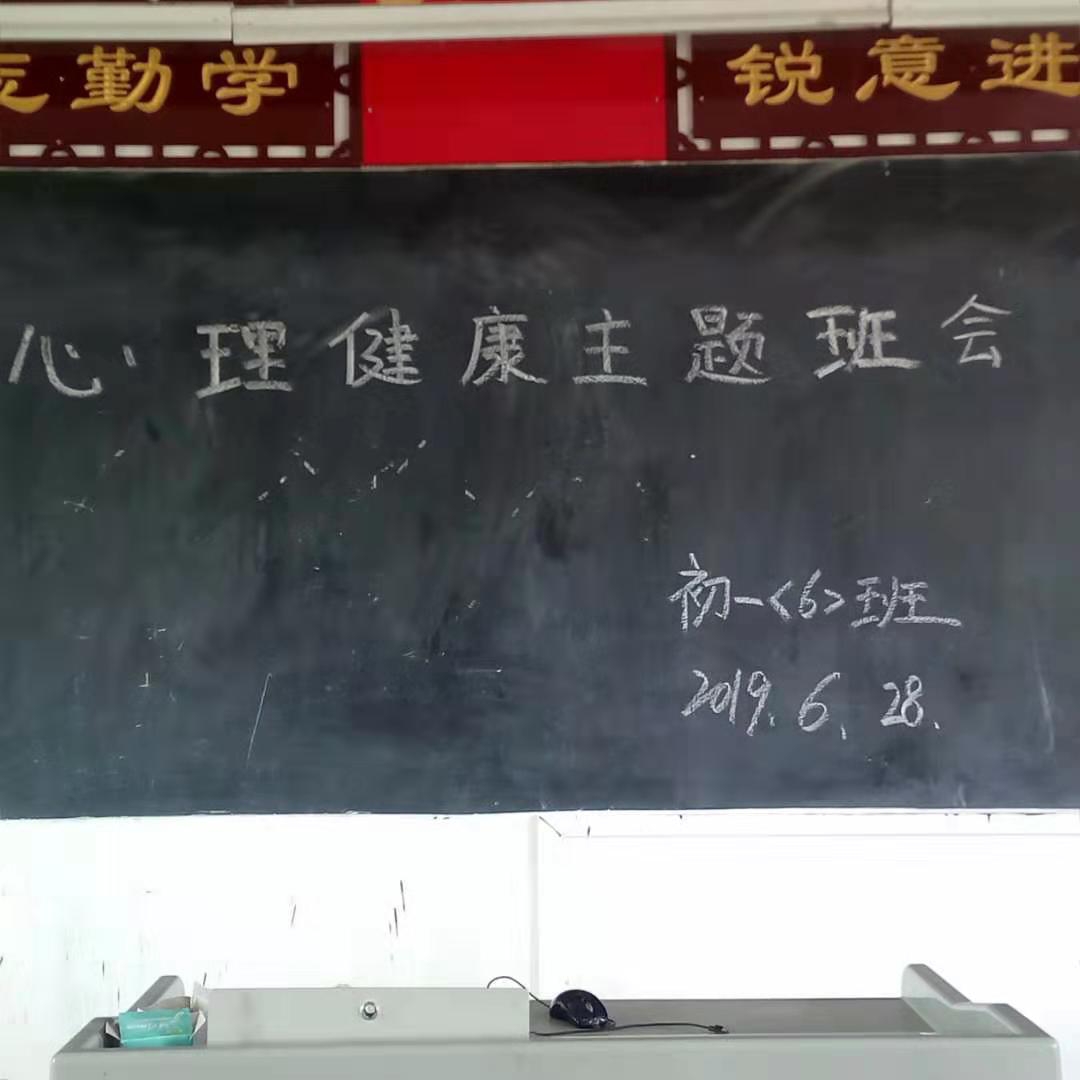 勤学
锐意进
心理健康主题班会
初一<6>班
2019.6.28.